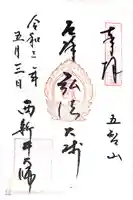 奉拝
五台山
厄除
弘法大師
西新井大師
令和二年
五月三日